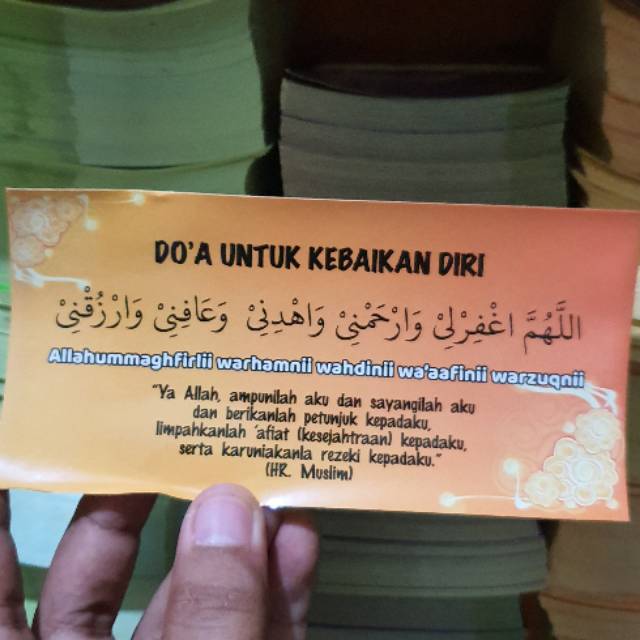 DO'A UNTUK KEBAIKAN DIRI
اللَّهُمَّ اغْفِرْلِيْ وَارْحَمْنِيْ وَاهْدِنِيْ وَعَافِنِيْ وَارْزُقْنِيْ
Allahummaghfirlii warhamnii wahdinii wa'aafinii warzuqnii
"Ya Allah, ampunilah aku dan sayangilah aku
dan berikanlah petunjuk kepadaku,
limpahkanlah 'afiat (kesejahtraan) kepadaku,
serta karuniakanla rezeki kepadaku."
(HR. Muslim)